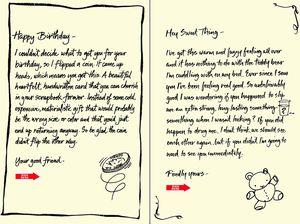 Happy Birthday -
I couldn't decide what to get you for your
birthday, so I flipped a coin. It came up
heads, which means you get this. A beautiful
heartfelt, handwritten card that you can cherish
in your scrapbook forever. Instead of some cold,
expensive, materialistic gift that would probably
be the wrong size or color and that you'd just
end up returning anyway. So be glad the coin
didn't flip the other way.
Your good friend -
Hey Sweet Thing -
I've got this warm and fuzzy feeling all over
and it has nothing to do with the teddy bear
I'm cuddling with in my bed. Ever since I saw
you I've been feeling real good. So unbelievably
good I was wondering if you happened to slip
me an extra strong, long lasting something-
something when I wasn't looking? If you did
happen to drug me, I don't think we should see
each other again, but if you didn't I'm going to
need to see you immediately.
Fondly yours -